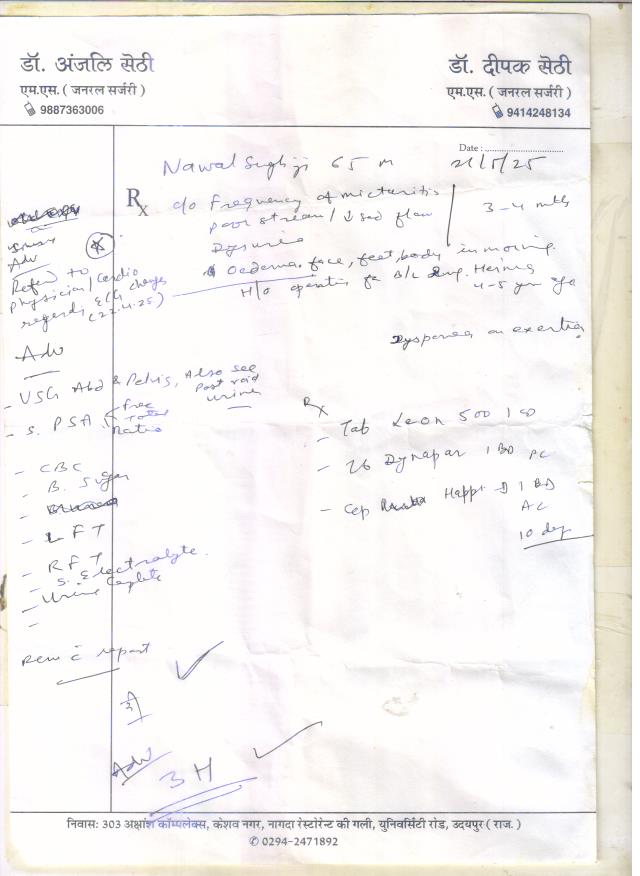 डॉ. अंजलि सेठी
एम.एस. ( जनरल सर्जरी )
9887363006
डॉ. दीपक सेठी
एम.एस. ( जनरल सर्जरी )
9414248134
Date :
21/5/25
Nawal Singh ji 65 m
Rx
c/o Frequency of micturition
poor stream/ ↓sed flow
Dysuria
3-4 mths
Oedema face, feet, body in morning.
H/o operation for B/L Ing. Hernia
4-5 yr ago
Dyspnea on exertion
Adv
Refer to
Physician/Cardio
regards ECG changes
(22.4.25)
Adv
- USG Abd & Pelvis, Also see
Post void
urine
- S. PSA
free
total
Ratio
- CBC
- B. Sugar
- LFT
- RFT
- S. Electrolyte.
- Urine Complete
-
Rev c̄ report
Rx
- Tab Leon 500 1 OD
- Tb Dynapar 1 BD PC
- Cap Happi D 1 BD
AC
10 day
Adv
3H
निवास: 303 अक्षांश कॉम्पलेक्स, केशव नगर, नागदा रेस्टोरेन्ट की गली, युनिवर्सिटी रोड, उदयपुर ( राज. )
✆ 0294-2471892